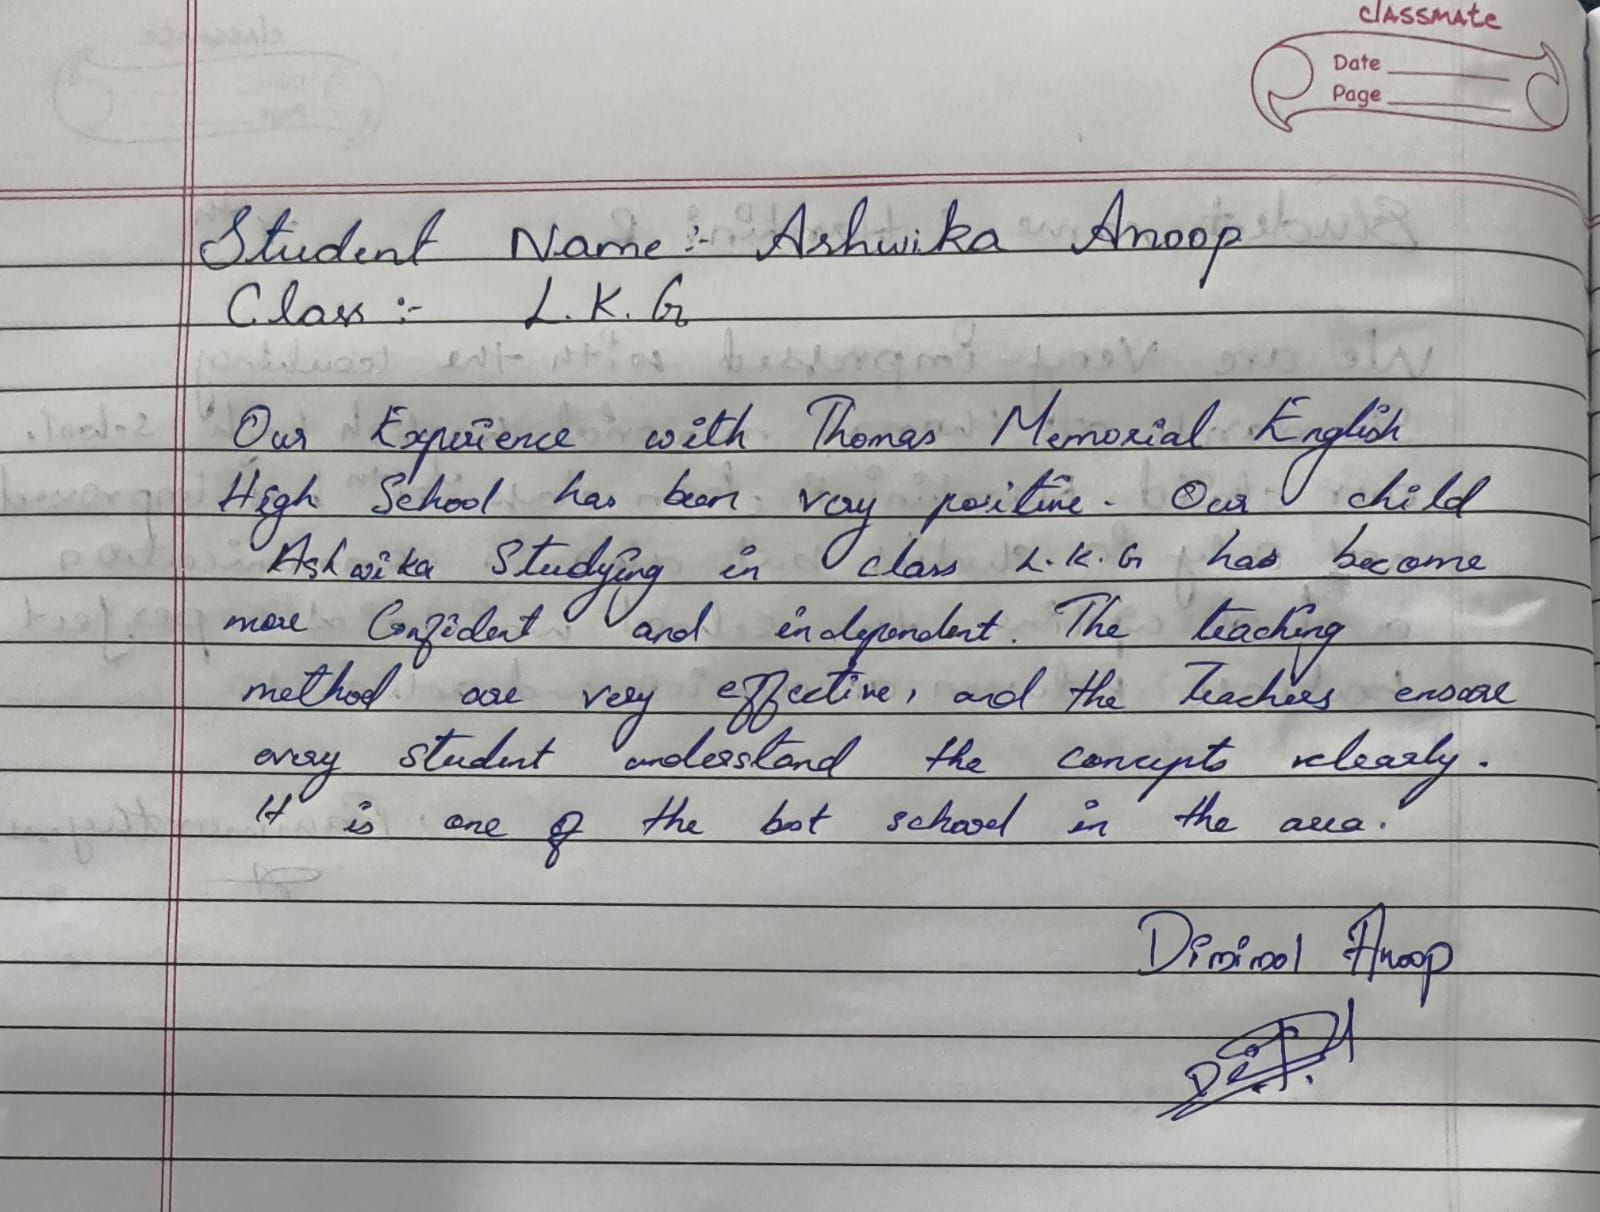 classmate
Date
Page
Student Name :- Ashwika Anoop
Class :- L.K.G
Our Experience with Thomas Memorial English
High School has been very positive. Our child
Ashwika Studying in class L.K.G has become
more Confident and independent. The teaching
method are very effective, and the Teachers ensure
every student understand the concepts clearly.
It is one of the best school in the area.
Dimimol Anoop